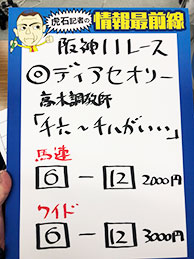 虎石記者の
情報最前線
阪神11レース
◎ディアセオリー
高木調教師
「千六〜千八がいい」
馬連
6 − 12 2000円
ワイド
6 − 12 3000円